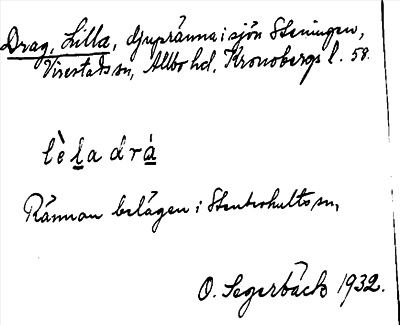 Drag, Lilla, djupränna i sjön Steningen,
Virestads sn, Allbo hd, Kronobergs l. 58.
lèla drá
Rännan belägen i Stenbrohults sn,
O. Segerbäck 1932.